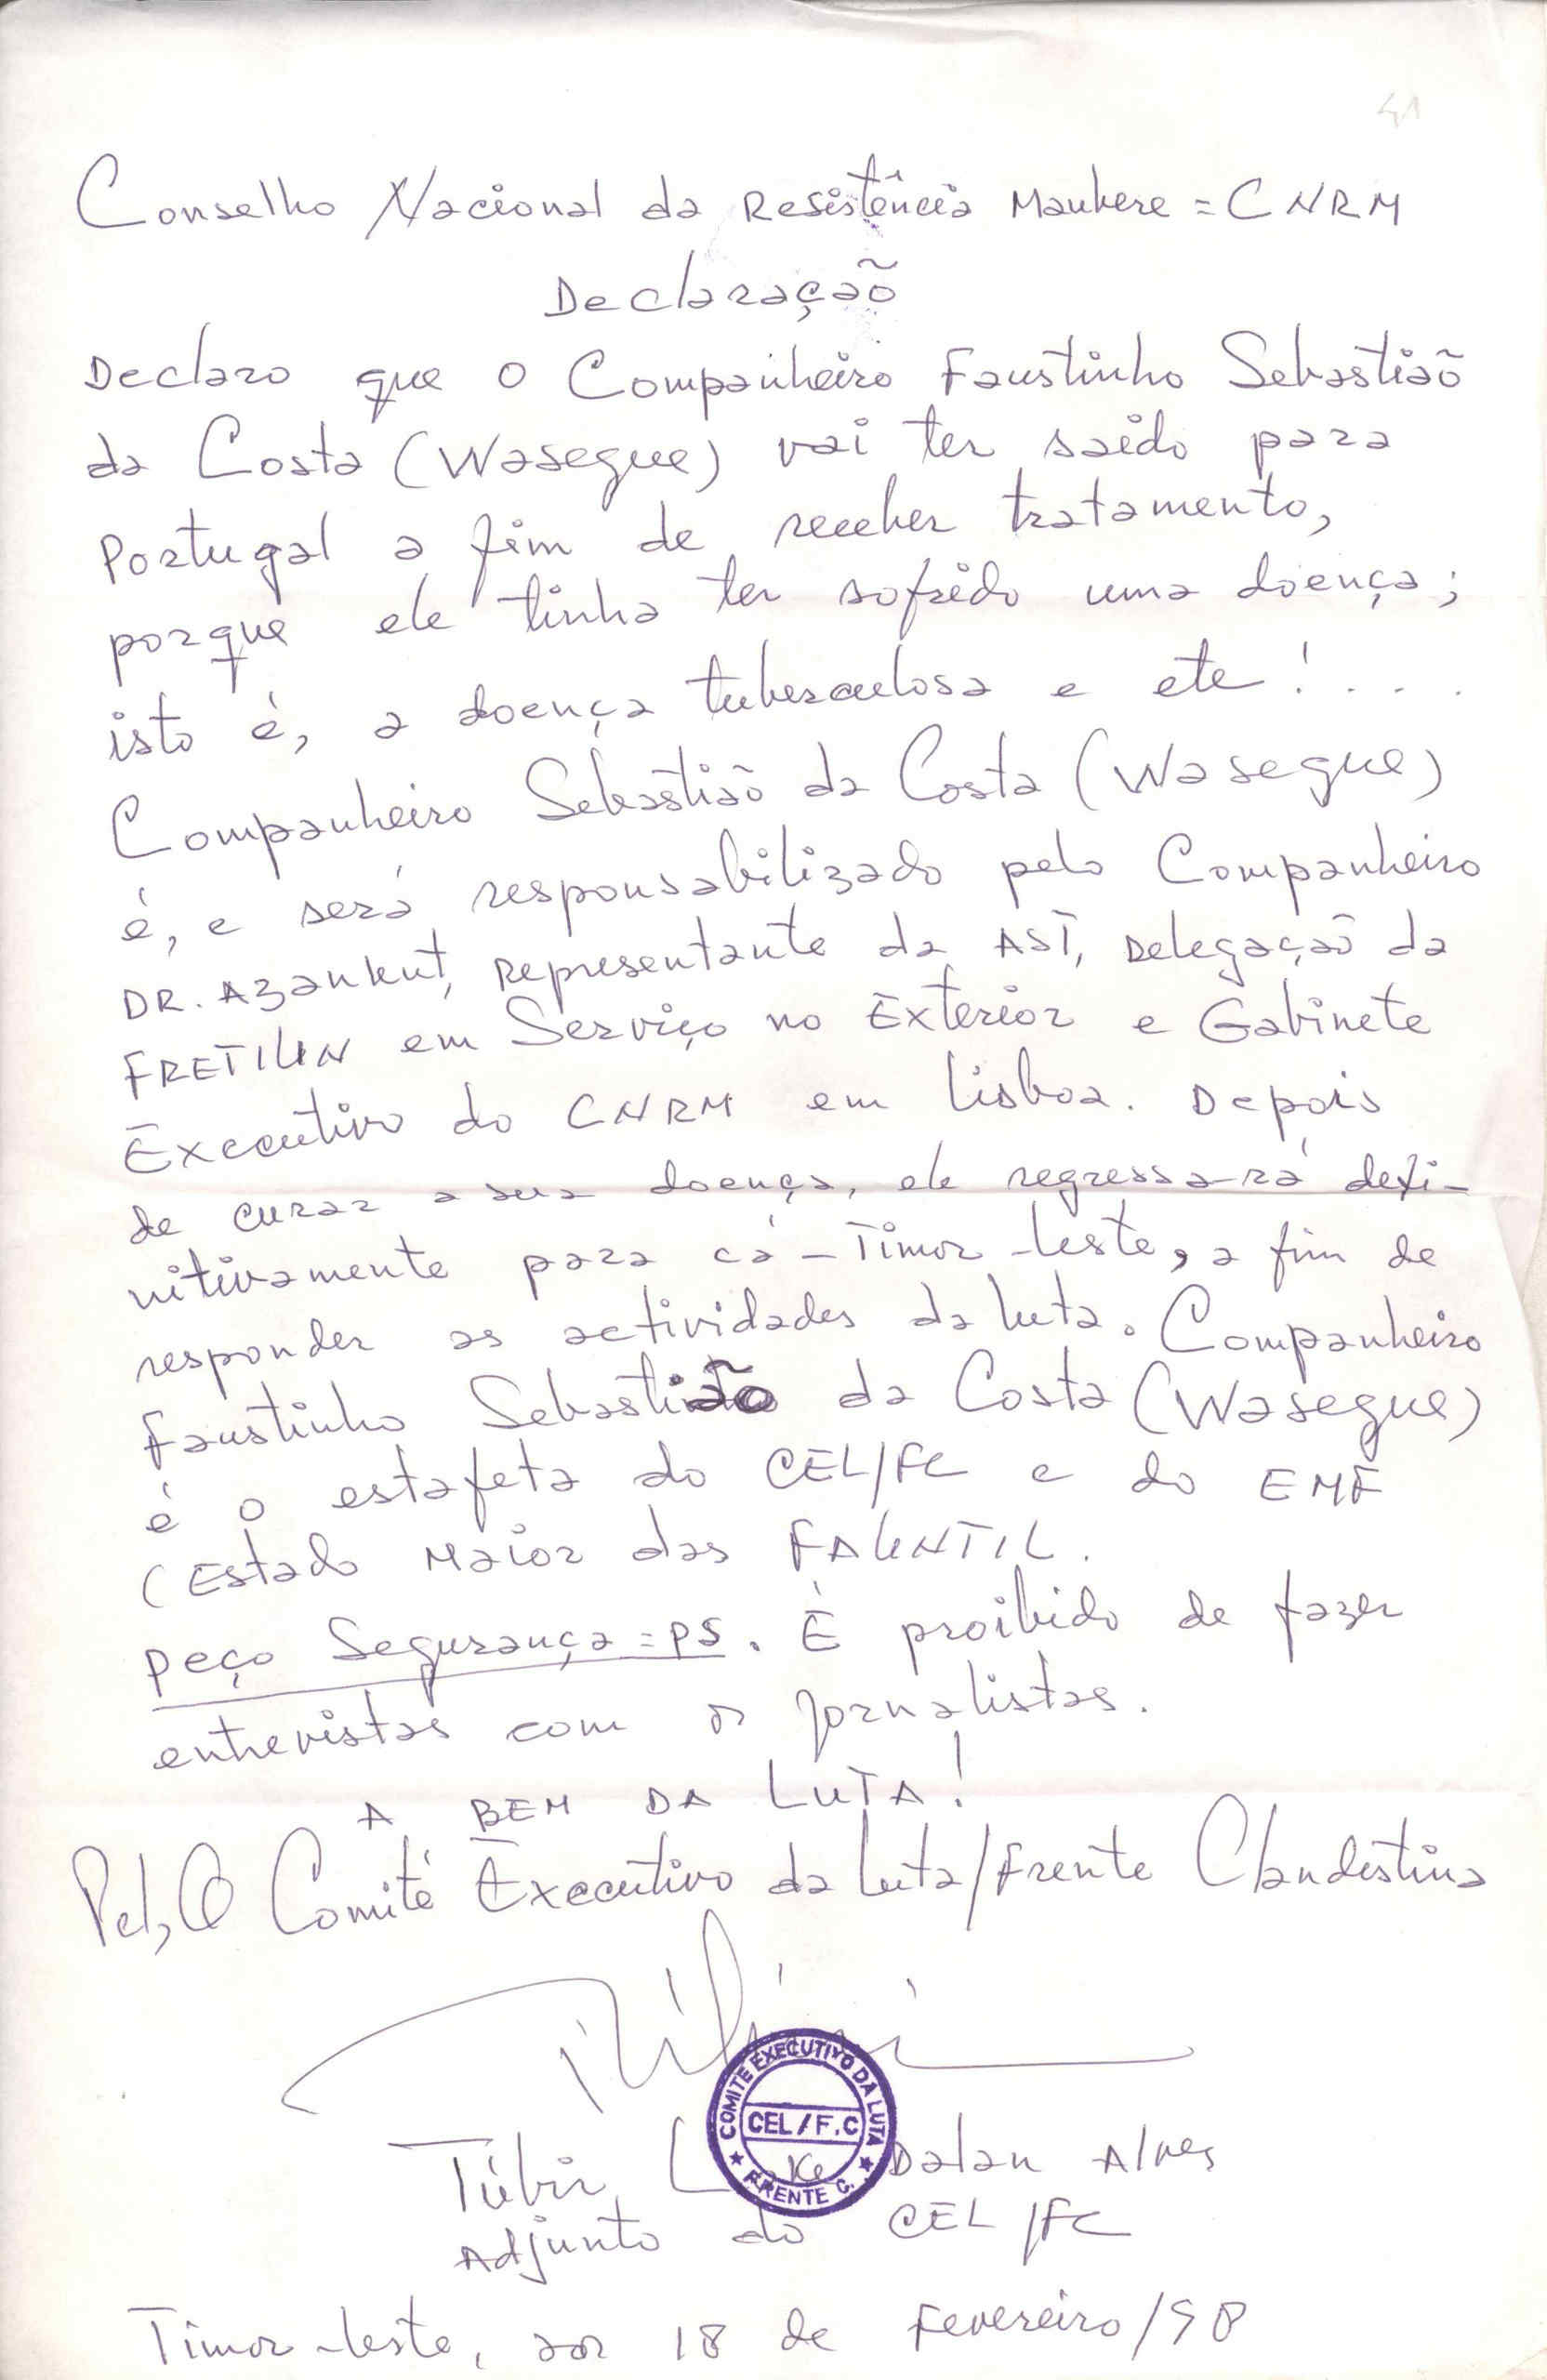 41
Conselho Nacional da Resistência Maubere = CNRM
Declaração
Declaro que o Companheiro Faustinho Sebastião
da Costa (Wasegue) vai ter saído para
Portugal a fim de receber tratamento,
porque ele tinha ter sofrido uma doença;
isto é, a doença tuberculosa e etc!...
Companheiro Sebastião da Costa (Wasegue)
é, e será responsabilizado pelo Companheiro
DR. Azankut, Representante da AST, Delegação da
FRETILIN em Serviço no Exterior e Gabinete
Executivo do CNRM em Lisboa. Depois
de curar a sua doença, ele regressará defi-
nitivamente para cá - Timor-Leste, a fim de
responder as actividades da luta. Companheiro
Faustinho Sebastião da Costa (Wasegue)
é o estafeta do CEL/FC e do EMF
(Estado Maior das FALINTIL.
Peço Segurança = PS. É proibido de fazer
entrevistas com os jornalistas.
A BEM DA LUTA!
Pel,O Comité Executivo da Luta/Frente Clandestina
COMITE EXECUTIVO DA LUTA
CEL/F.C
FRENTE C.
Túbir Dalan Alves
Adjunto do CEL/FC
Timor-Leste, aos 18 de Fevereiro/98